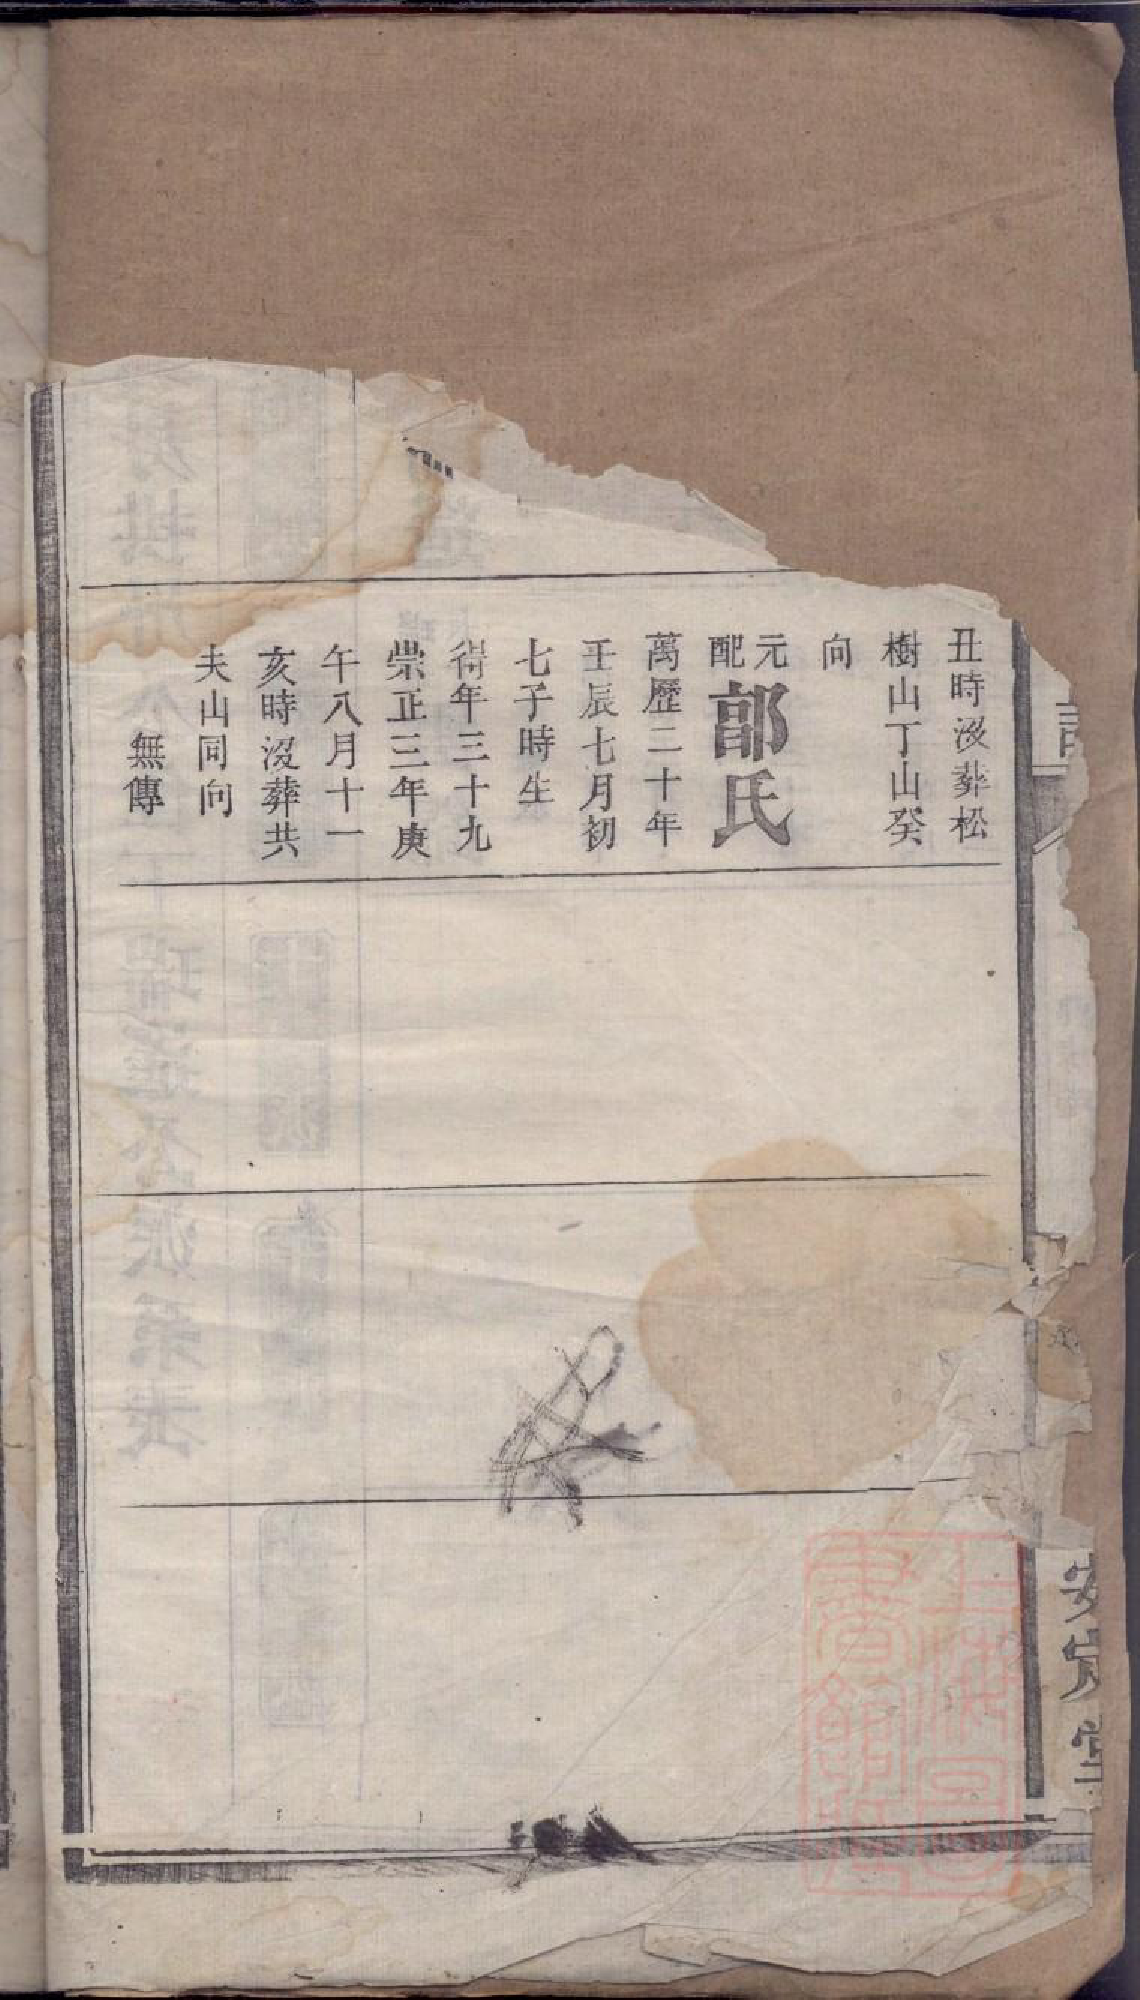 丑時沒葬松
樹山丁山癸
向
元配郭氏
萬歷二十年
壬辰七月初
七子時生
得年三十九
崇正三年庚
午八月十一
亥時沒葬共
夫山同向
無傳
安定堂
上海圖書館藏